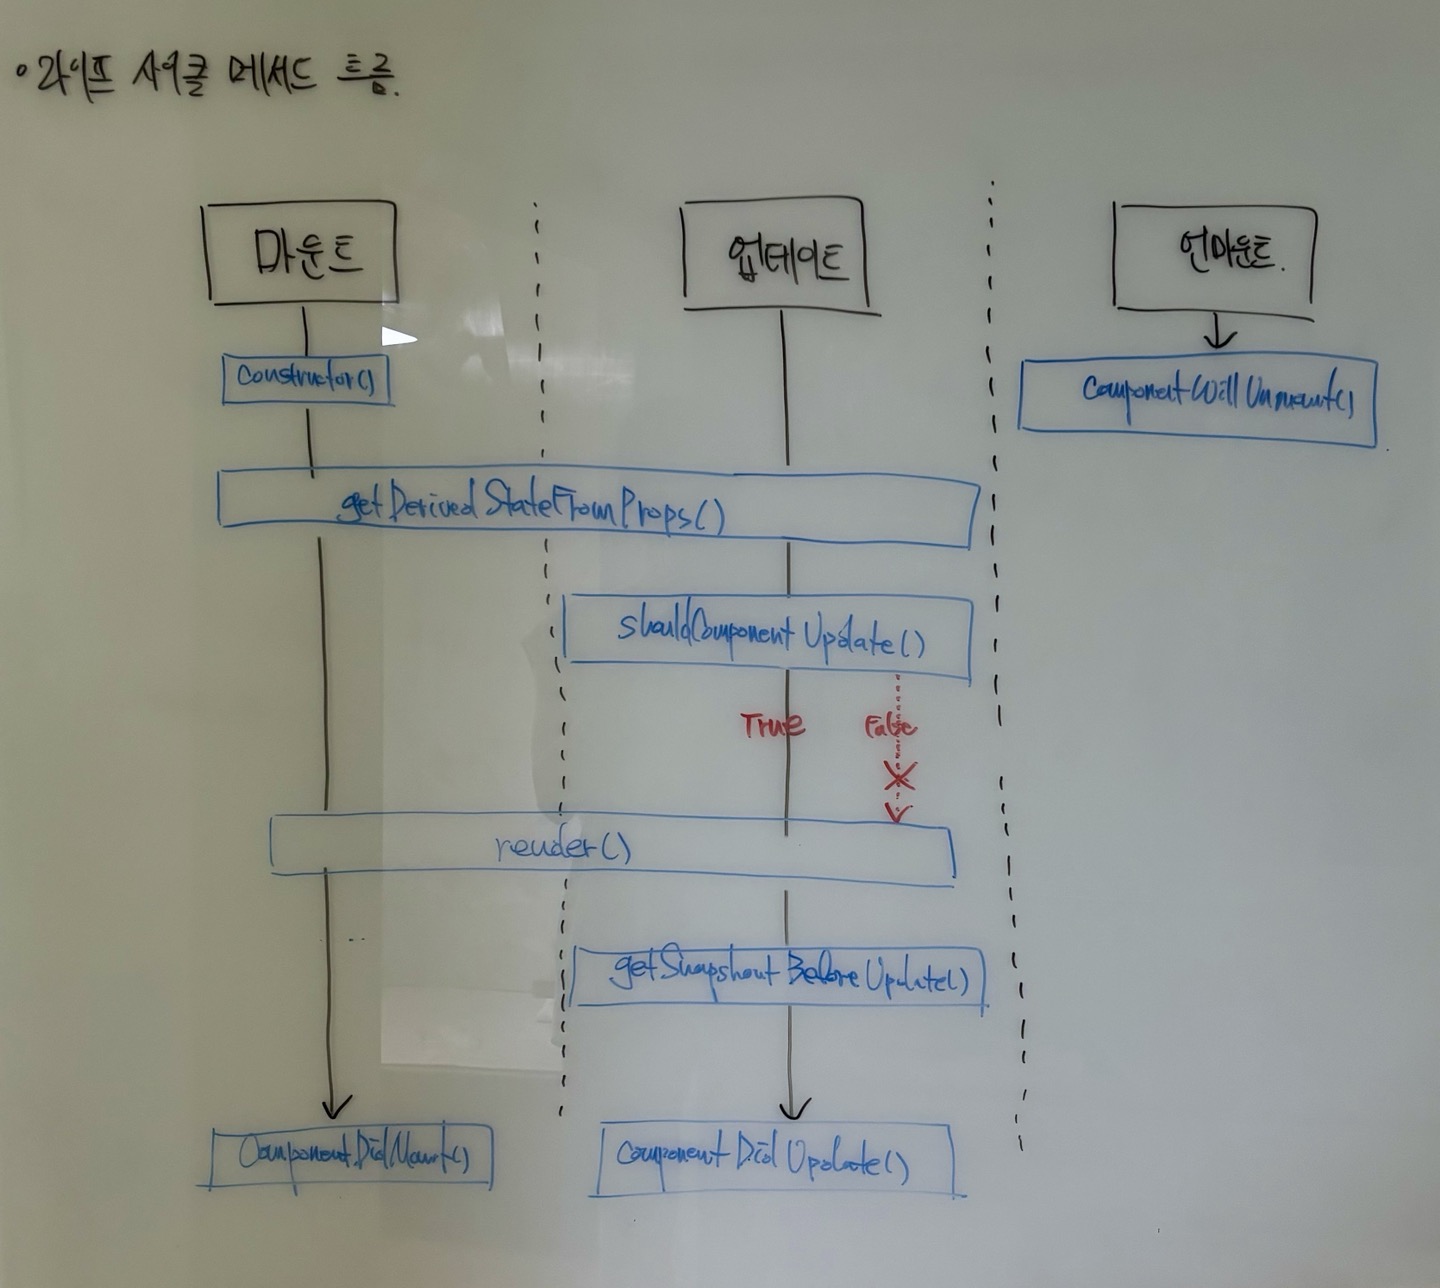 • 라이프 사이클 메서드 흐름.
마운트
업데이트
언마운트.
constructor()
componentWillUnmount()
getDerivedStateFromProps()
shouldComponentUpdate()
True
False
render()
getSnapshoutBeforeUpdate()
ComponentDidMount()
componentDidUpdate()